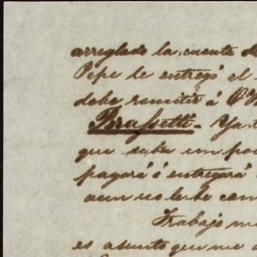 arreglado la cuenta d
Pepe le entregó el
debe remitir á
Ya
que sube un po
pagará ó entregará
aun no le he com
Trabajo m
es asunto que me